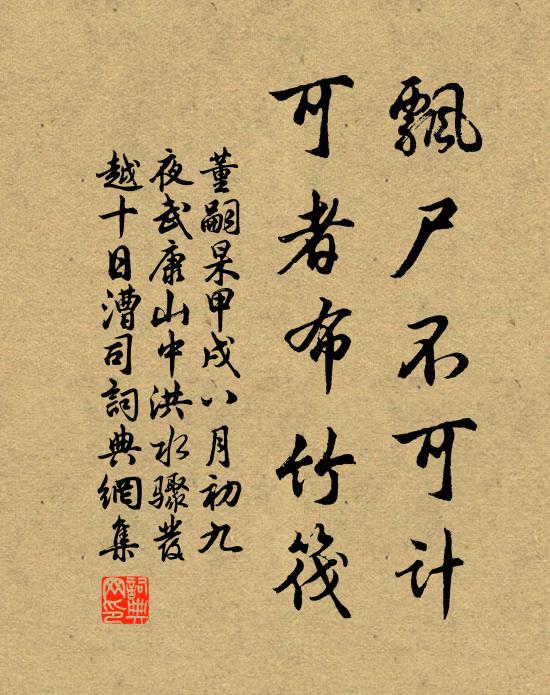 飄尸不可計
可者布竹筏
董嗣杲甲戌八月初九
夜武康山中洪水驟發
越十日漕司詞典網集
詞典
网印